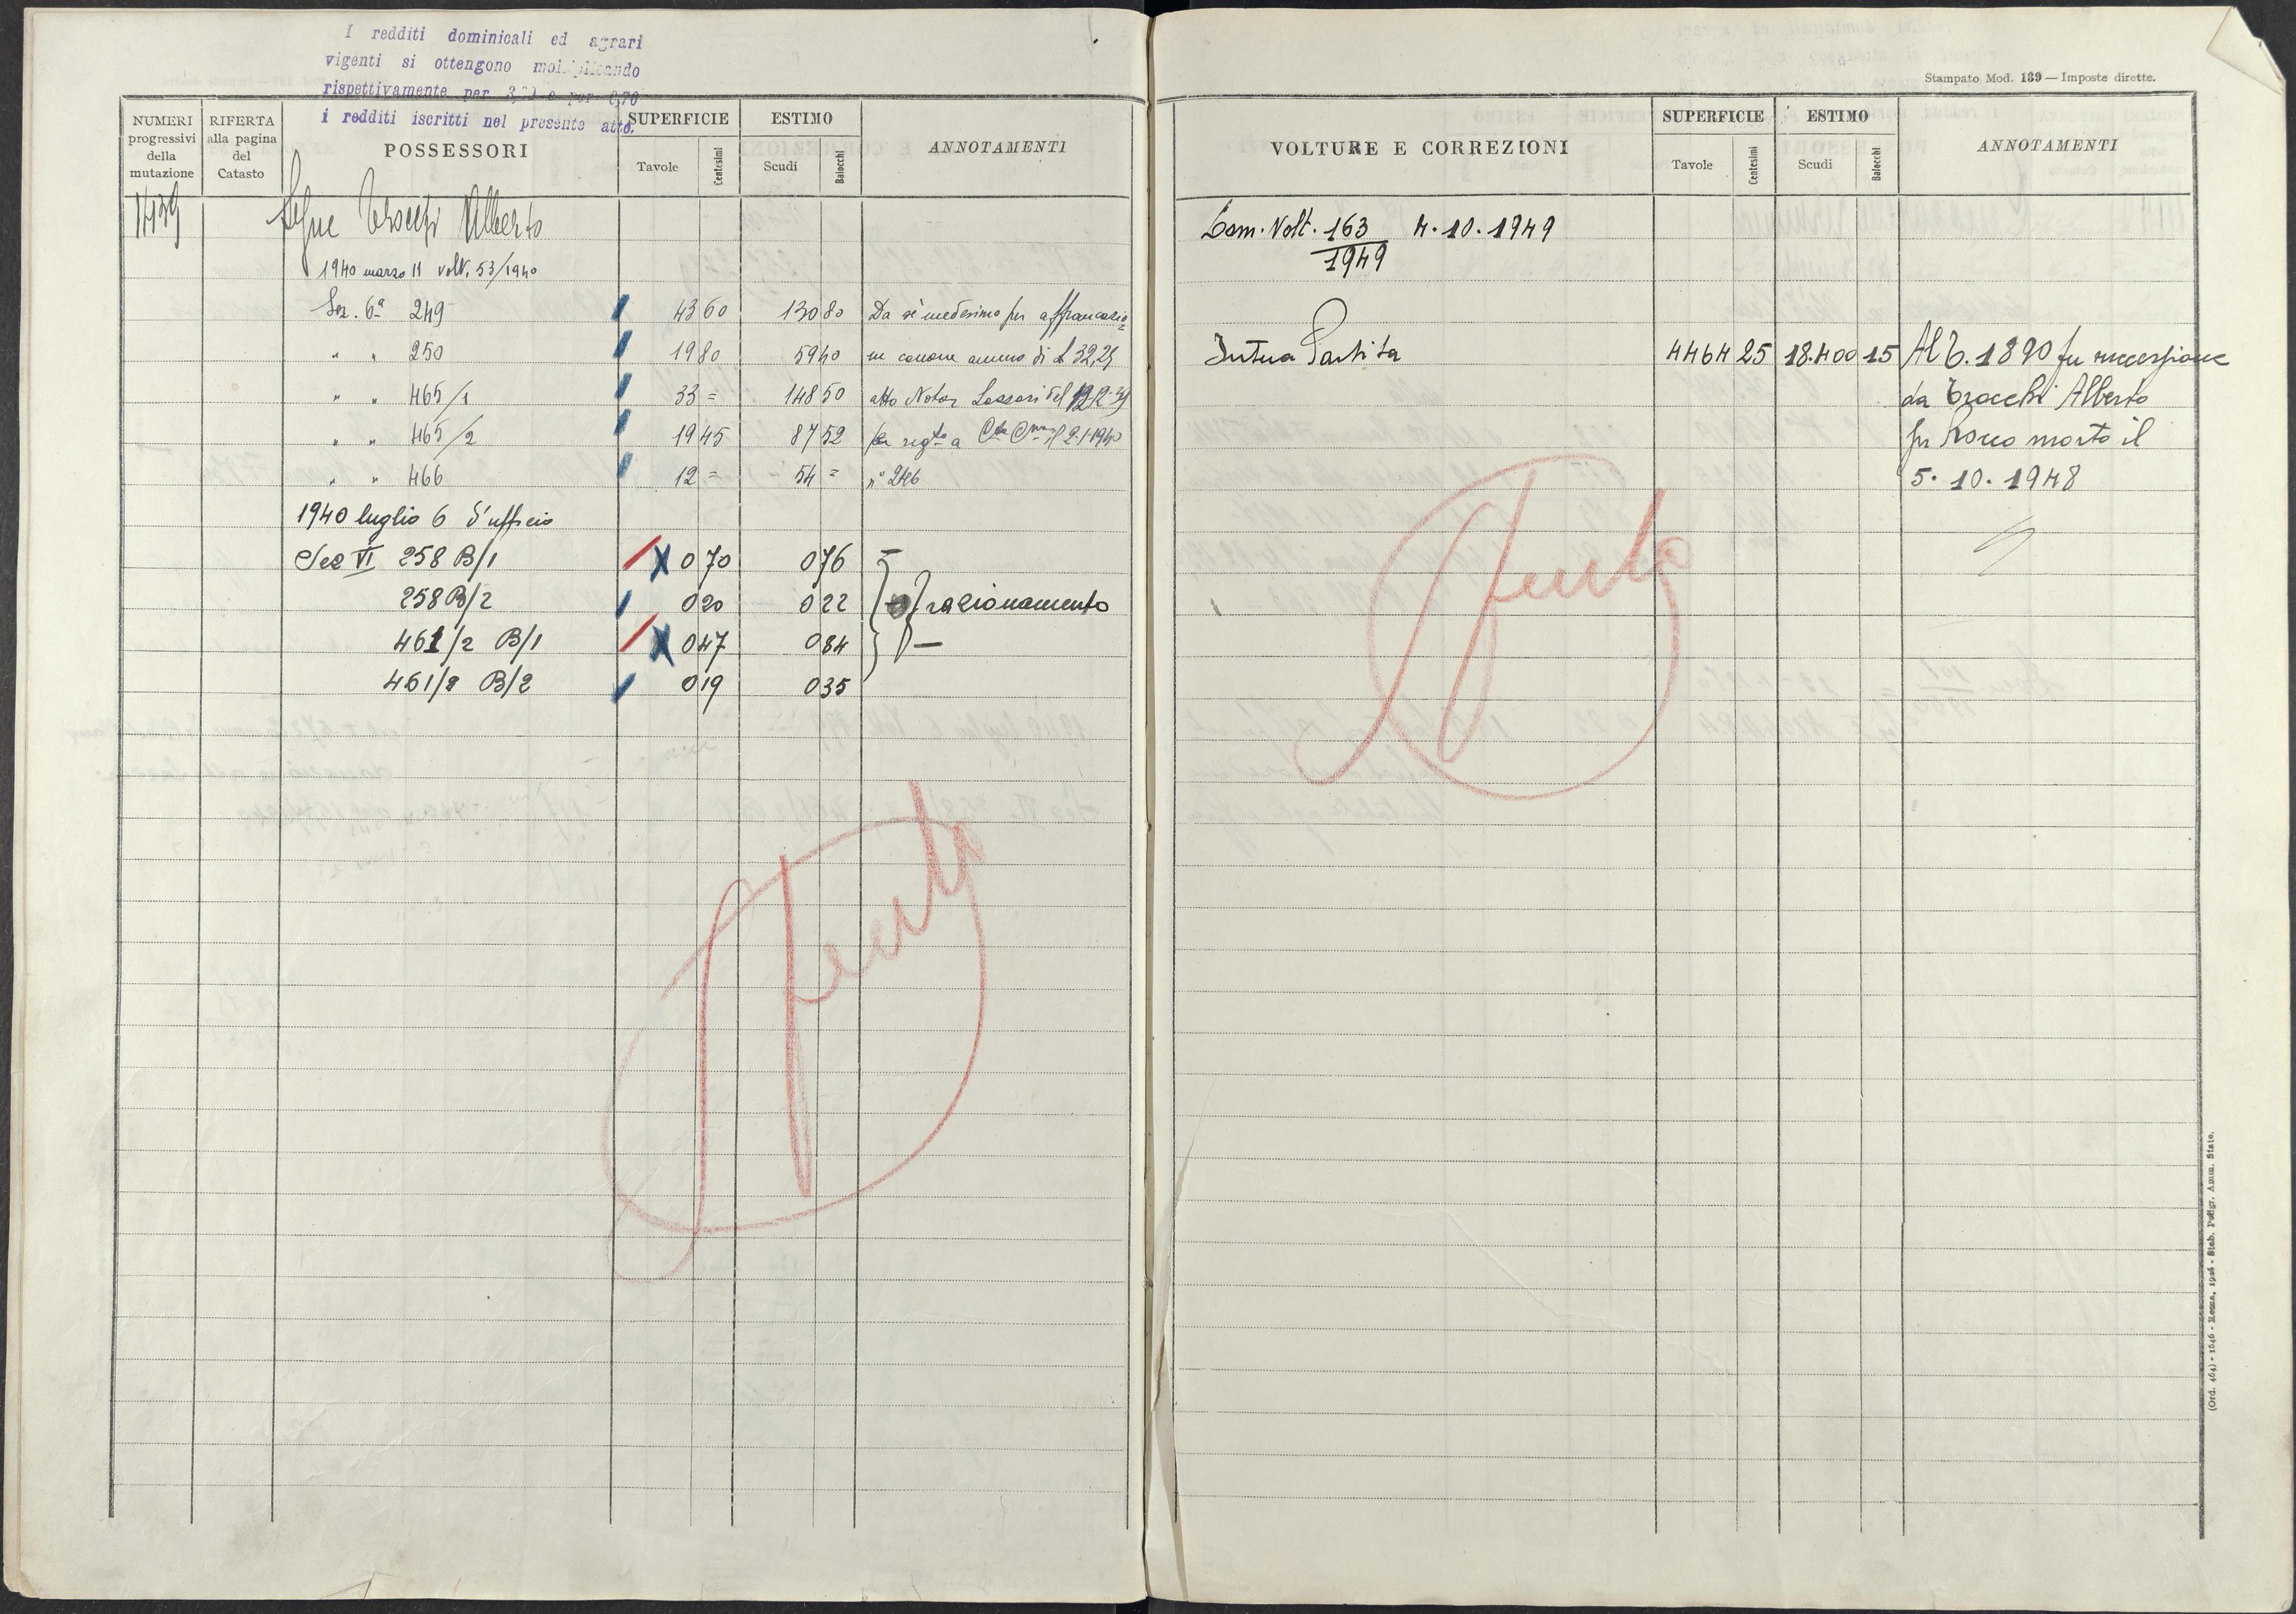 I redditi dominicali ed agrari
vigenti si ottengono moltiplicando
rispettivamente per 3,20 e per 0,70
i redditi iscritti nel presente atto.
NUMERI progressivi della mutazione
RIFERTA alla pagina del Catasto
POSSESSORI
SUPERFICIE
Tavole Centesimi
ESTIMO
Scudi Baiocchi
ANNOTAMENTI
1439 Segue Trocchi Alberto
1940 marzo 11 volt. 53/1940
Sez. 6ª 249 43 60 130 80 Da sè medesimo per affrancazio=
" " 250 19 80 59 40 ne canone annuo di £ 32,25
" " 465/1 33 = 148 50 atto Notar Lazzari del
" " 465/2 19 45 87 52 2-1-1940
" " 466 12 = 54 = n° 246
1940 luglio 6 d'ufficio
Sez VI 258 B/1 0 70 0 76
258 B/2 0 20 0 22 Frazionamento
461/2 B/1 0 47 0 84
461/2 B/2 0 19 0 35
Fento
Stampato Mod. 139 — Imposte dirette.
VOLTURE E CORREZIONI
SUPERFICIE
Tavole Centesimi
ESTIMO
Scudi Baiocchi
ANNOTAMENTI
Com. Volt. 163 4.10.1949
1949
Intera Partita 4464 25 18.400 15 Al C. 1890 per successione
da Trocchi Alberto
fu Rocco morto il
5.10.1948
(Ord. 464) - 1646 - Roma, 1926 - Stab. Poligr. Amm. Stato.